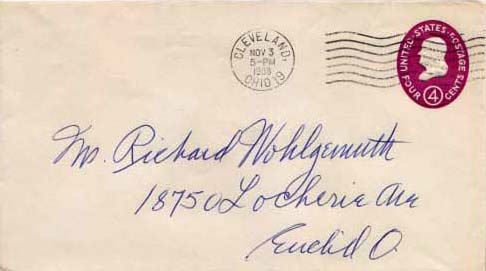 CLEVELAND,
NOV 3
5-PM
OHIO 19
UNITED STATES POSTAGE
4
FOUR CENTS
Mr. Richard Wohlgemuth
18750 Locherie Ave
Euclid O.